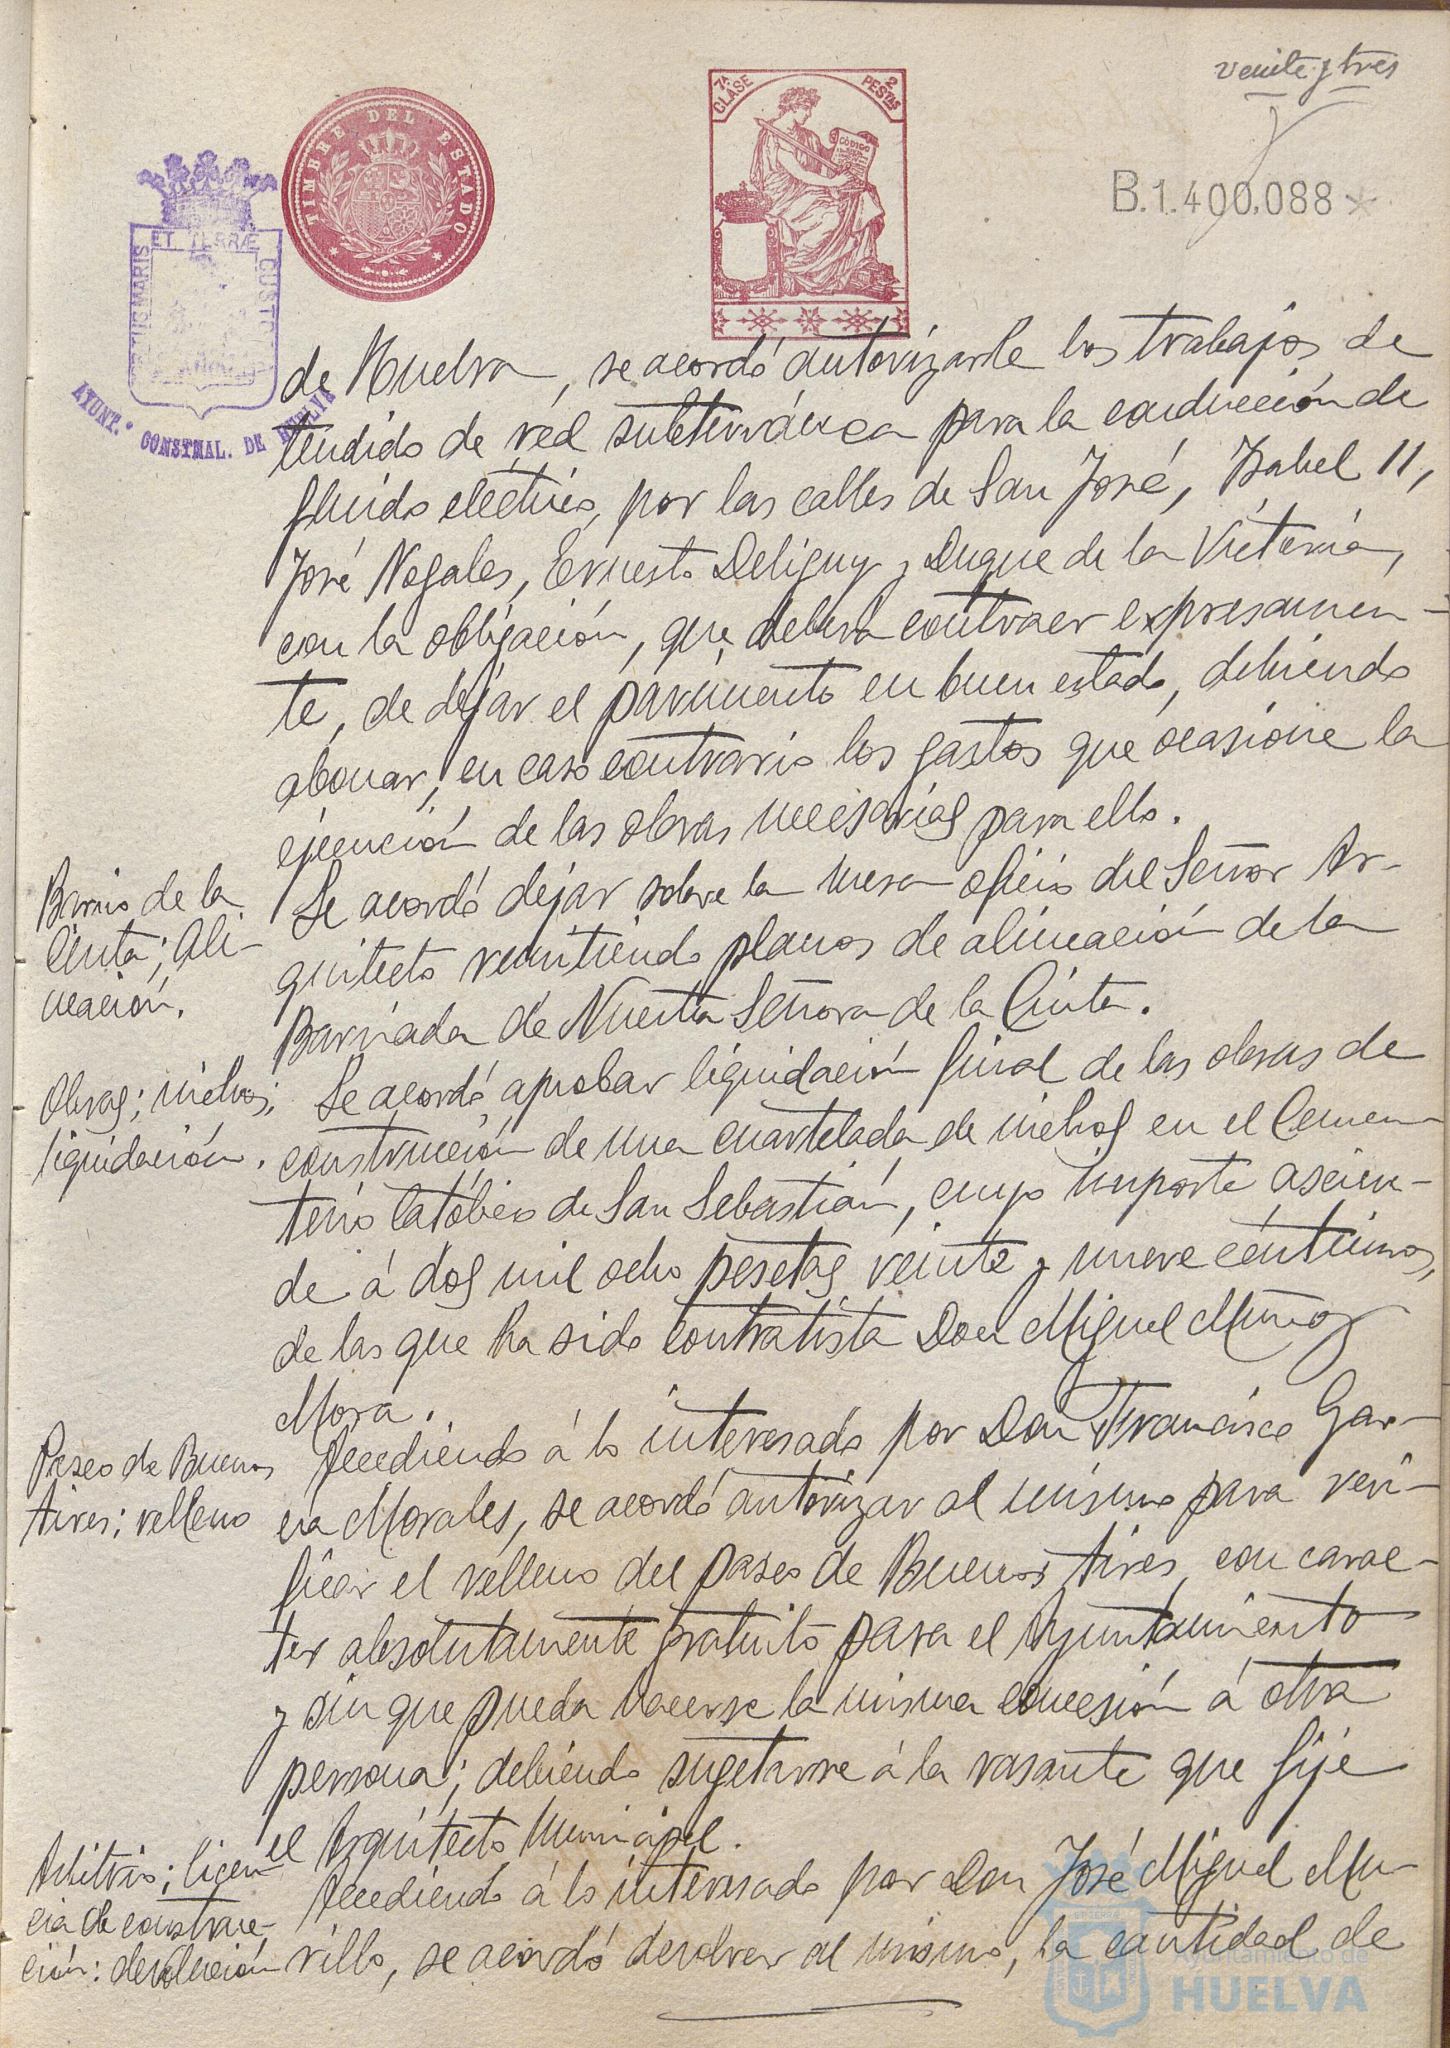 veinte y tres
7ª CLASE
2 PESTAS
TIMBRE DEL ESTADO
CÓDIGO
B.1.400,088*
PORTUS MARIS ET TERRÆ CUSTODIA
AYUNT.º CONSTNAL. DE HUELVA
de Huelva, se acordó autorizarle los trabajos de
tendido de réd subterránea para la conducción de
fluido electrico, por las calles de San José, Isabel II,
José Nogales, Ernesto Deligny y Duque de la Victoria,
con la obligación, que debera contraer expresamen-
te, de dejar el pavimento en buen estado, debiendo
abonar, en caso contrario los gastos que ocasione la
ejecución de las obras necesarias para ello.
Barrio de la
Cinta; Ali-
neación.
Se acordó dejar sobre la mesa oficio del Señor Ar-
quitecto remitiendo planos de alineación de la
Barriada de Nuestra Señora de la Cinta.
Obras; nichos;
liquidación.
Se acordó aprobar liquidación final de las obras de
construcción de una cuartelada de nichos en el Cemen-
terio Católico de San Sebastián, cuyo importe ascien-
de á dos mil ocho pesetas veinte y nueve céntimos,
de las que ha sido contratista Don Miguel Muñoz
Mora.
Paseo de Buenos
Aires; relleno
Accediendo á lo interesado por Don Francisco Gar-
cia Morales, se acordó autorizar al mismo para veri-
ficar el relleno del paseo de Buenos Aires, con carac-
ter absolutamente gratuito para el Ayuntamiento
y sin que pueda hacerse la misma concesión á otra
persona; debiendo sugetarse á la rasante que fije
el Arquitecto Municipal.
Arbitrio; licen-
cia de construc-
ción: devolución
Accediendo á lo interesado por Don José Miguel Mu-
rillo, se acordó devolver al mismo, la cantidad de
Ayuntamiento de
HUELVA